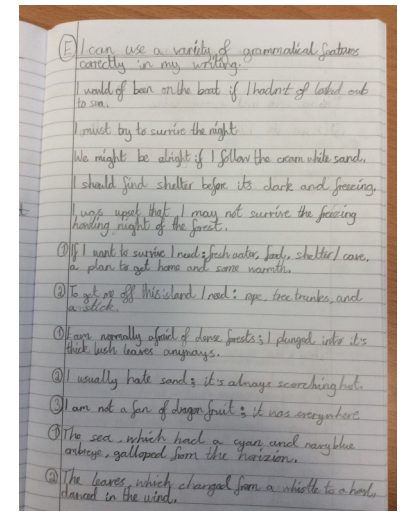 E I can use a variety of grammatical features
correctly in my writing.
I would of been on the boat if I hadnt of lashd out
to sea.
I must try to survive the night
We might be alright if I follow the cream white sand.
I should find shelter before its dark and freezing.
I was upset that I may not survive the freezing
howling night of the forest.
① If I want to survive I need: fresh water, food, shelter / cave,
a plan to get home and some warmth.
② To get me off this island I need: rope, tree trunks, and
a stick.
① I am normally afraid of dense forests; I plunged into it's
thick lush leaves anyways.
② I usually hate sand; it's always scorching hot.
③ I am not a fan of dragon fruit; it was everywhere
① The sea, which had a cyan and navy blue
, galloped from the horizion.
② The leaves, which changed from a whistle to a howl,
danced in the wind.